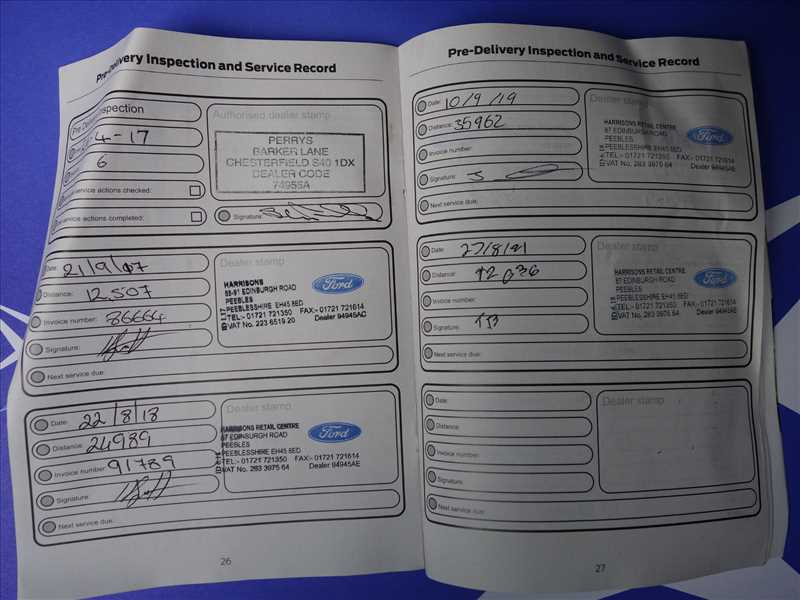 Pre-Delivery Inspection and Service Record
Pre Del Inspection
4-17
6
service actions checked:
service actions completed:
Authorised dealer stamp
PERRYS
BARKER LANE
CHESTERFIELD S40 1DX
DEALER CODE
74955A
Signature:
Date: 21/9/17
Distance: 12,507
Invoice number: 86664
Signature:
Next service due:
Dealer stamp
HARRISONS
EDINBURGH ROAD
PEEBLES
PEEBLESSHIRE EH45 8ED
TEL:- 01721 721350 FAX:- 01721 721614
VAT No. 223 6519 20 Dealer 94945AC
Ford
Date: 22/8/18
Distance: 24989
Invoice number: 91789
Signature:
Next service due:
Dealer stamp
HARRISONS RETAIL CENTRE
87 EDINBURGH ROAD
PEEBLES
PEEBLESSHIRE EH45 8ED
TEL:- 01721 721350 FAX:- 01721 721614
VAT No. 283 3975 64 Dealer 94945AE
Ford
26
Pre-Delivery Inspection and Service Record
Date: 10/9/19
Distance: 35962
Invoice number:
Signature:
Next service due:
Dealer stamp
HARRISONS RETAIL CENTRE
87 EDINBURGH ROAD
PEEBLES
PEEBLESSHIRE EH45 8ED
TEL:- 01721 721350 FAX:- 01721 721614
VAT No. 283 3975 64 Dealer 94945AE
Ford
Date: 27/8/21
Distance:
Invoice number:
Signature:
Next service due:
Dealer stamp
HARRISONS RETAIL CENTRE
87 EDINBURGH ROAD
PEEBLES
PEEBLESSHIRE EH45 8ED
TEL:- 01721 721350 FAX:- 01721 721614
VAT No. 283 3975 64 Dealer 94945AE
Ford
Date:
Distance:
Invoice number:
Signature:
Next service due:
Dealer stamp
27